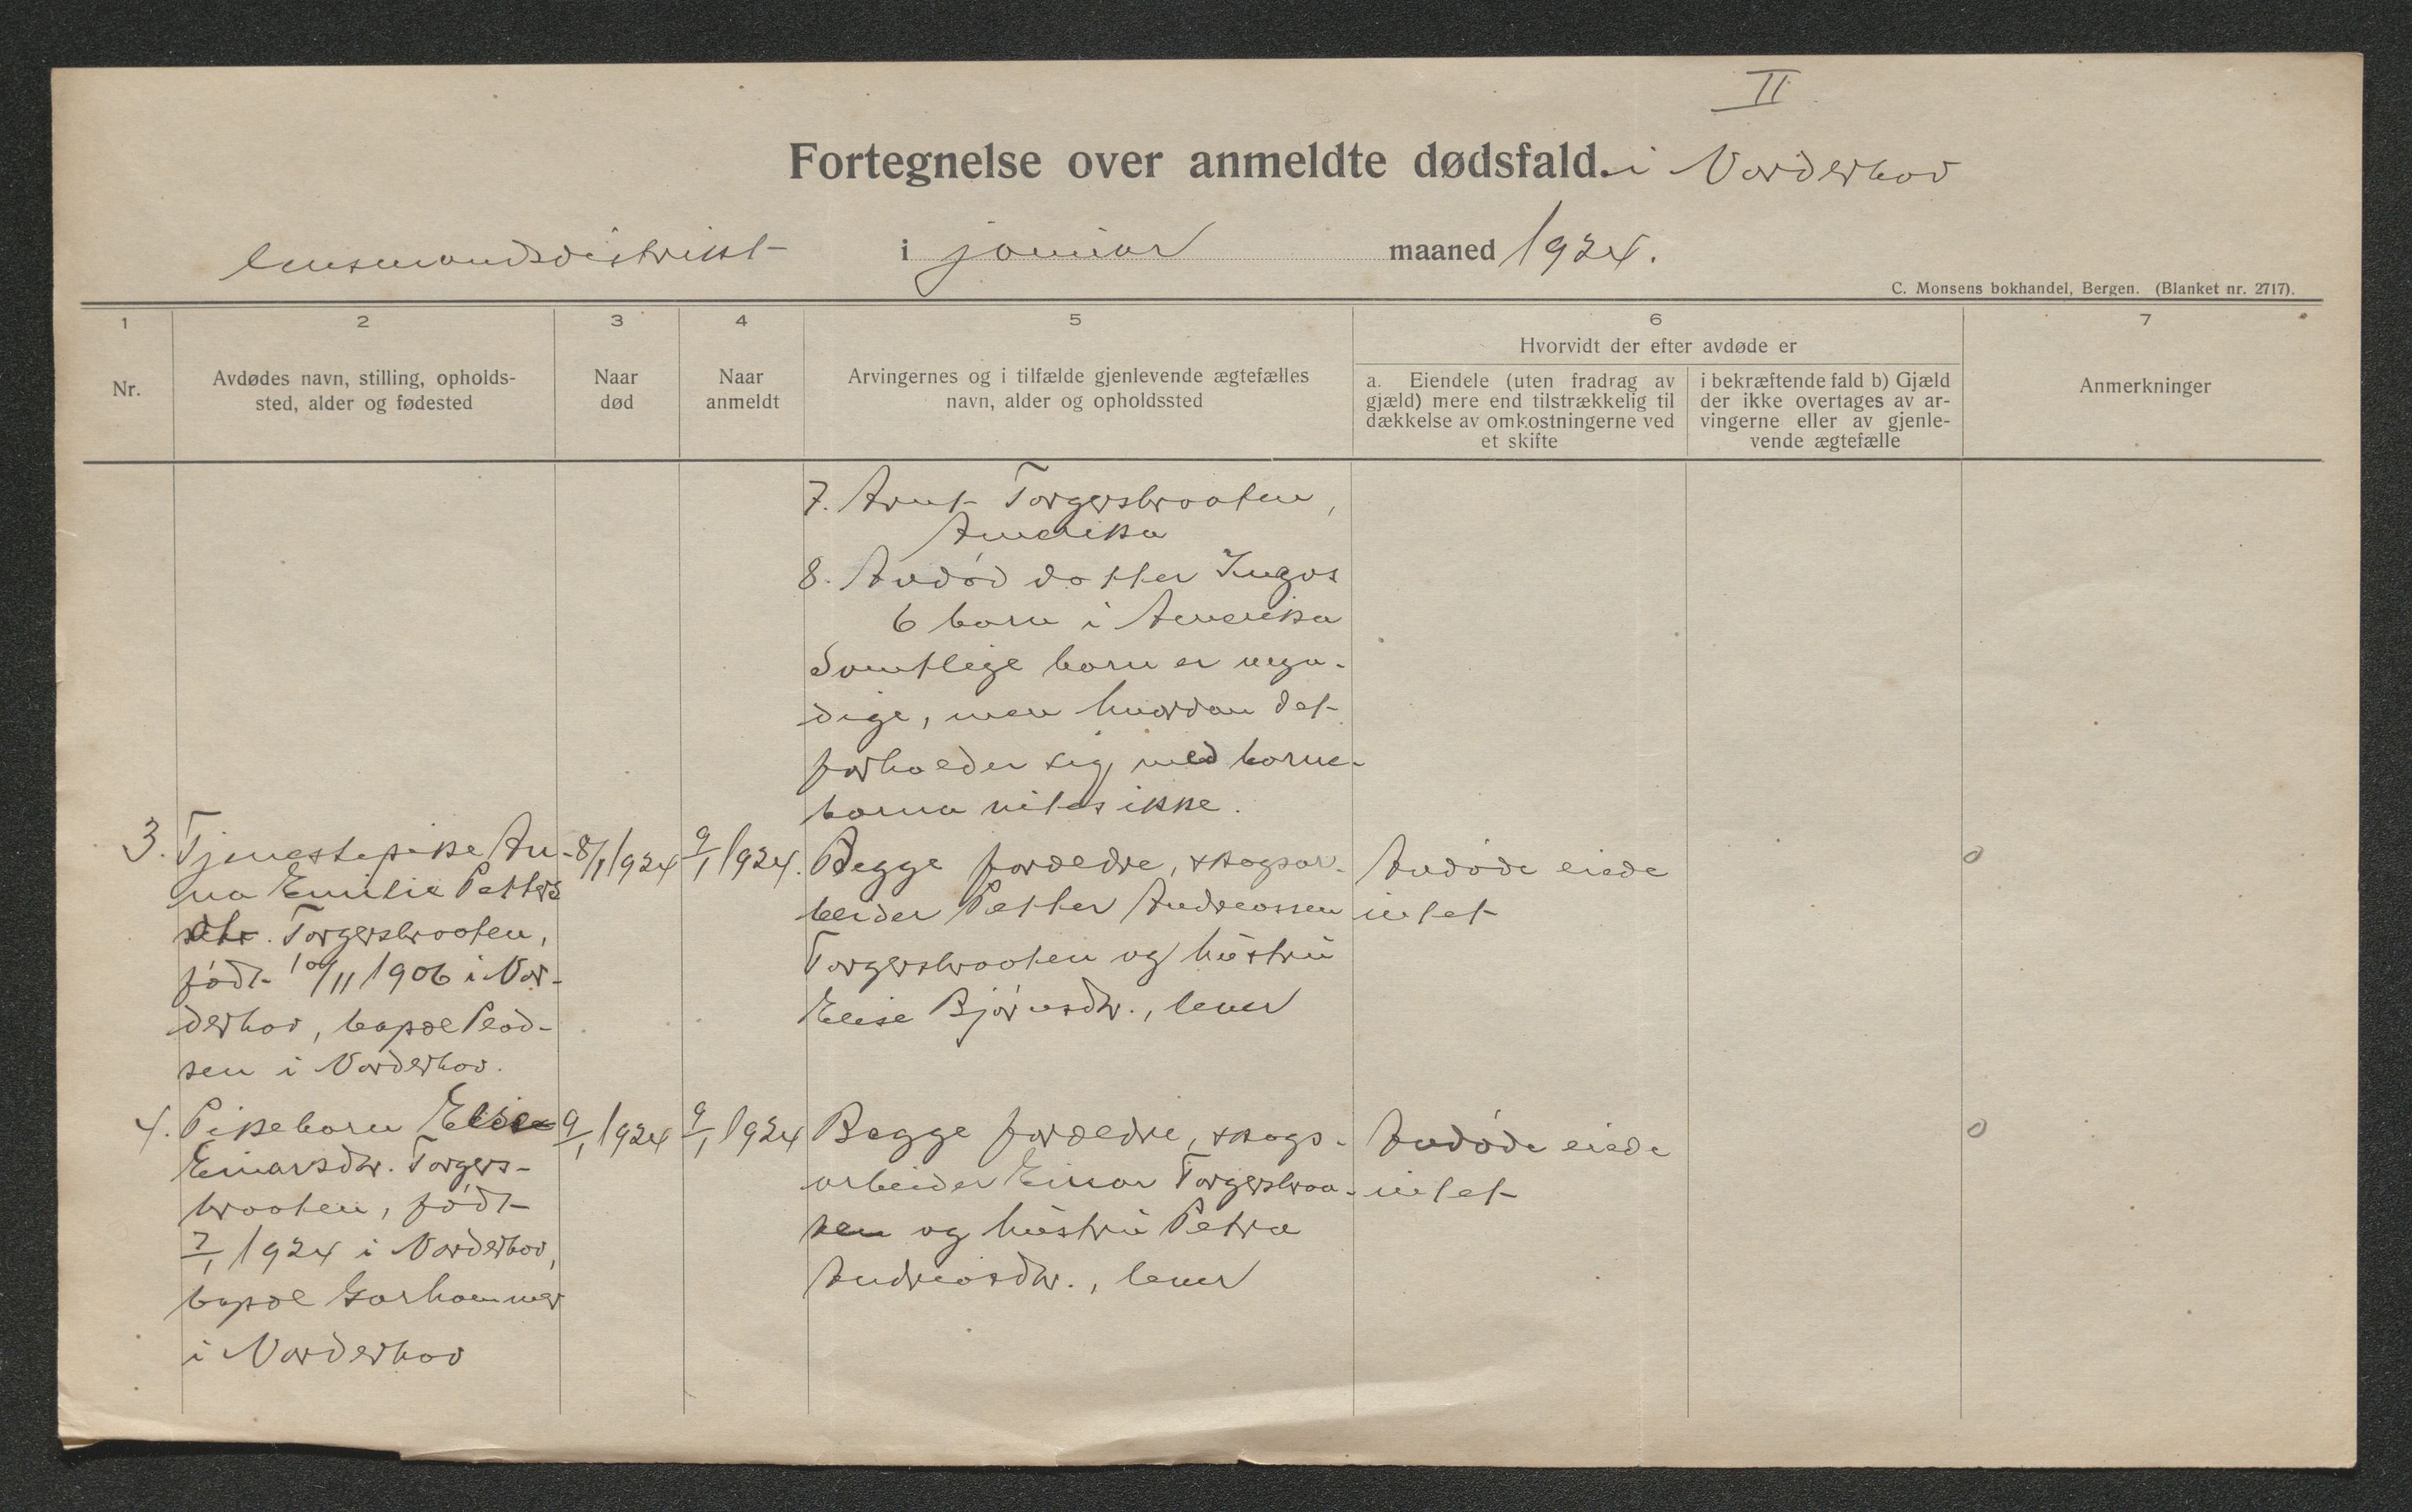 II
Fortegnelse over anmeldte dødsfald. i Norderhov
lensmandsdistrikt i januar maaned 1924.
C. Monsens bokhandel, Bergen. (Blanket nr. 2717).
1 2 3 4 5 6 7
Nr.
Avdødes navn, stilling, opholds-
sted, alder og fødested
Naar
død
Naar
anmeldt
Arvingernes og i tilfælde gjenlevende ægtefælles
navn, alder og opholdssted
Hvorvidt der efter avdøde er
a. Eiendele (uten fradrag av
gjæld) mere end tilstrækkelig til
dækkelse av omkostningerne ved
et skifte
i bekræftende fald b) Gjæld
der ikke overtages av ar-
vingerne eller av gjenle-
vende ægtefælle
Anmerkninger
7. Arnt Torgersbraaten,
Amerika
8. Avdød datter Ingas
6 barn i Amerika
Samtlige barn er myn-
dige, men hvordan det
forholder sig med barne-
barna vites ikke.
3. Tjenestepike An-
na Emilie Petters
dtr. Torgersbraaten,
født 10/11 1906 i Nor-
derhov, bopæl
i Norderhov.
8/1 1924
9/1 1924.
Begge forældre, skogsar-
beider Petter Andreassen
Torgersbraaten og hustru
Elise Bjørnsdtr., lever
Avdøde eiede
intet
0
4. Pikebarn Elise
Einarsdtr. Torgers-
braaten, født
7/1 1924 i Norderhov,
bopæl Garhammer
i Norderhov
9/1 1924
9/1 1924
Begge forældre, skogs-
arbeider Einar Torgersbraa-
ten og hustru Petra
Andreasdtr., lever
Avdøde eiede
intet
0